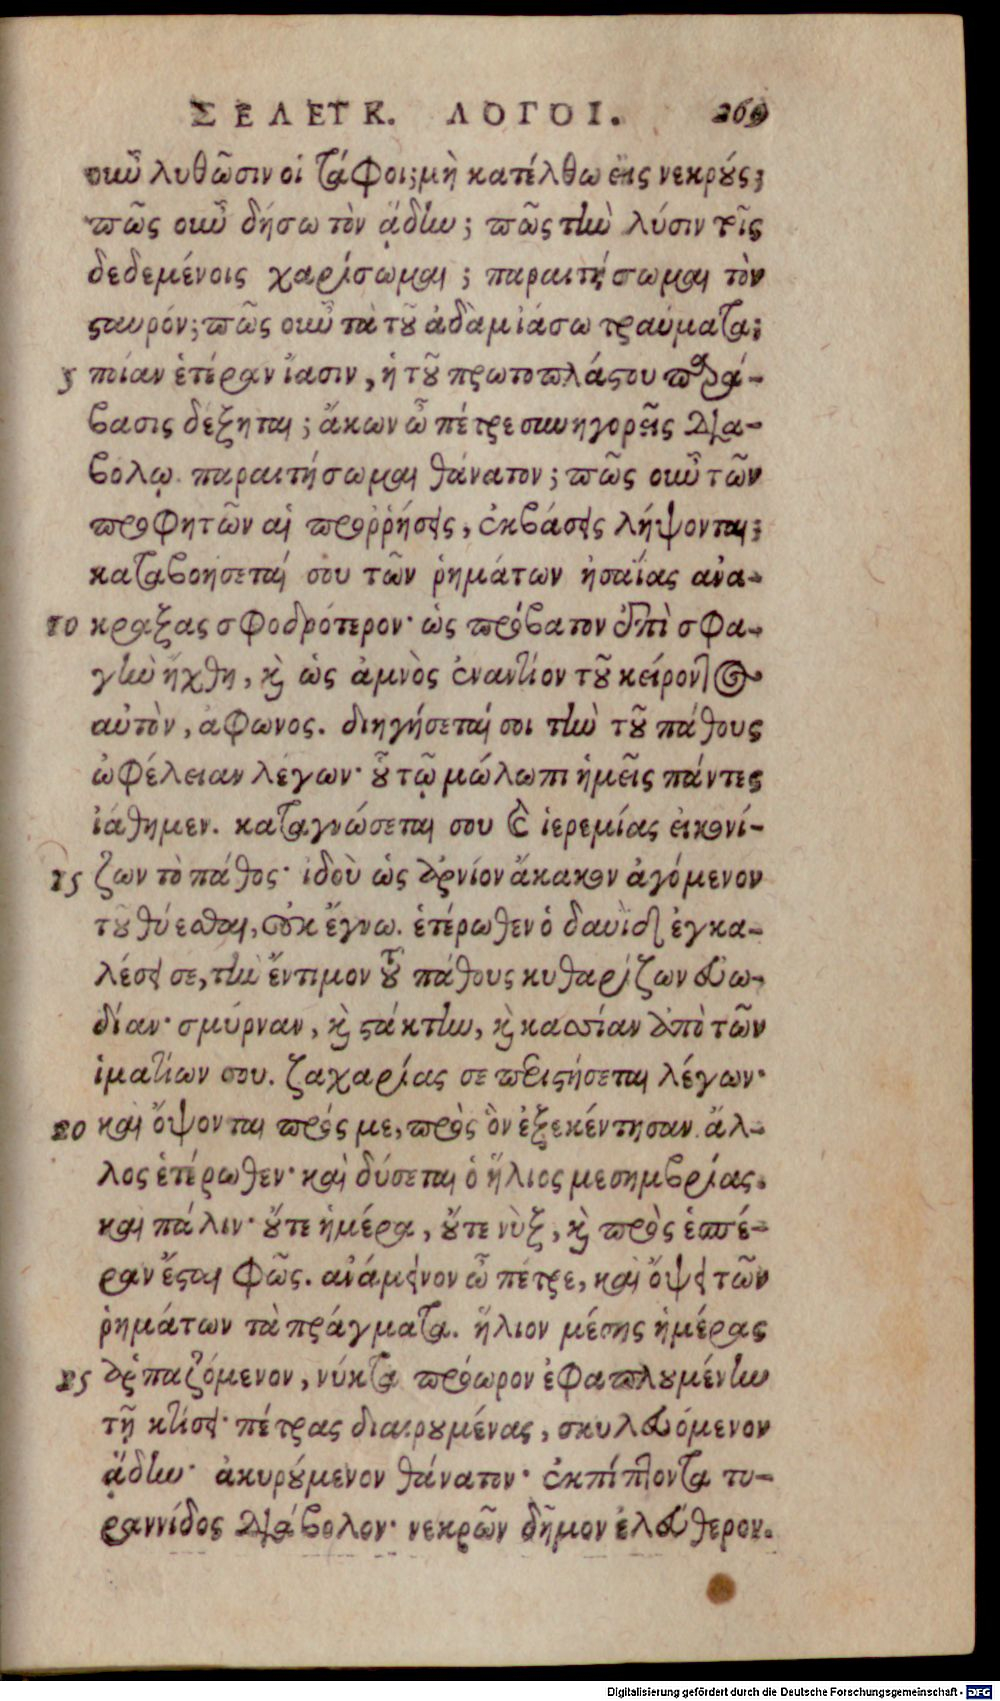 ΣΕΛΕΥΚ. ΛΟΓΟΙ. 269
οὖν λυθῶσιν οἱ τάφοι; μὴ κατέλθω εἰς νεκρούς;
πῶς οὖν δήσω τὸν ᾅδην; πῶς τὴν λύσιν τοῖς
δεδεμένοις χαρίσωμαι; παραιτήσωμαι τὸν
σταυρόν; πῶς οὖν τὰ τοῦ ἀδὰμ ἰάσω τραύματα;
5 ποίαν ἑτέραν ἴασιν, ἡ τοῦ πρωτοπλάστου παρά-
βασις δέξηται; ἄκων ὦ πέτρε συνηγορεῖς δια-
βόλῳ. παραιτήσωμαι θάνατον; πῶς οὖν τῶν
προφητῶν αἱ προῤῥήσεις, ἐκβάσεις λήψονται;
καταβοήσεταί σου τῶν ῥημάτων ἡσαΐας ἀνα-
10 κράξας σφοδρότερον· ὡς πρόβατον ἐπὶ σφα-
γὴν ἤχθη, καὶ ὡς ἀμνὸς ἐναντίον τοῦ κείροντος
αὐτὸν, ἄφωνος. διηγήσεταί σοι τὴν τοῦ πάθους
ὠφέλειαν λέγων· οὗ τῷ μώλωπι ἡμεῖς πάντες
ἰάθημεν. καταγνώσεται σου καὶ ἱερεμίας εἰκονί-
15 ζων τὸ πάθος· ἰδοὺ ὡς ἀρνίον ἄκακον ἀγόμενον
τοῦ θύεσθαι, οὐκ ἔγνω. ἑτέρωθεν ὁ δαυὶδ ἐγκα-
λέσει σε, τὴν ἔντιμον τοῦ πάθους κυθαρίζων εὐω-
δίαν· σμύρναν, καὶ στάκτην, καὶ κασσίαν ἀπὸ τῶν
ἱματίων σου. ζαχαρίας σε περιστήσεται λέγων·
20 καὶ ὄψονται πρός με, πρὸς ὃν ἐξεκέντησαν. ἄλ-
λος ἑτέρωθεν· καὶ δύσεται ὁ ἥλιος μεσημβρίας.
καὶ πάλιν· οὔτε ἡμέρα, οὔτε νὺξ, καὶ πρὸς ἑσπέ-
ραν ἔσται φῶς. ἀνάμεινον ὦ πέτρε, καὶ ὄψει τῶν
ῥημάτων τὰ πράγματα. ἥλιον μέσης ἡμέρας
25 ἁρπαζόμενον, νύκτα πρόωρον ἐφαπλουμένην
τῇ κτίσει· πέτρας διαιρουμένας, σκυλευόμενον
ᾅδην· ἀκυρούμενον θάνατον· ἐκπίπτοντα τυ-
ραννίδος διάβολον· νεκρῶν δῆμον ἐλεύθερον.
Digitalisierung gefördert durch die Deutsche Forschungsgemeinschaft - DFG